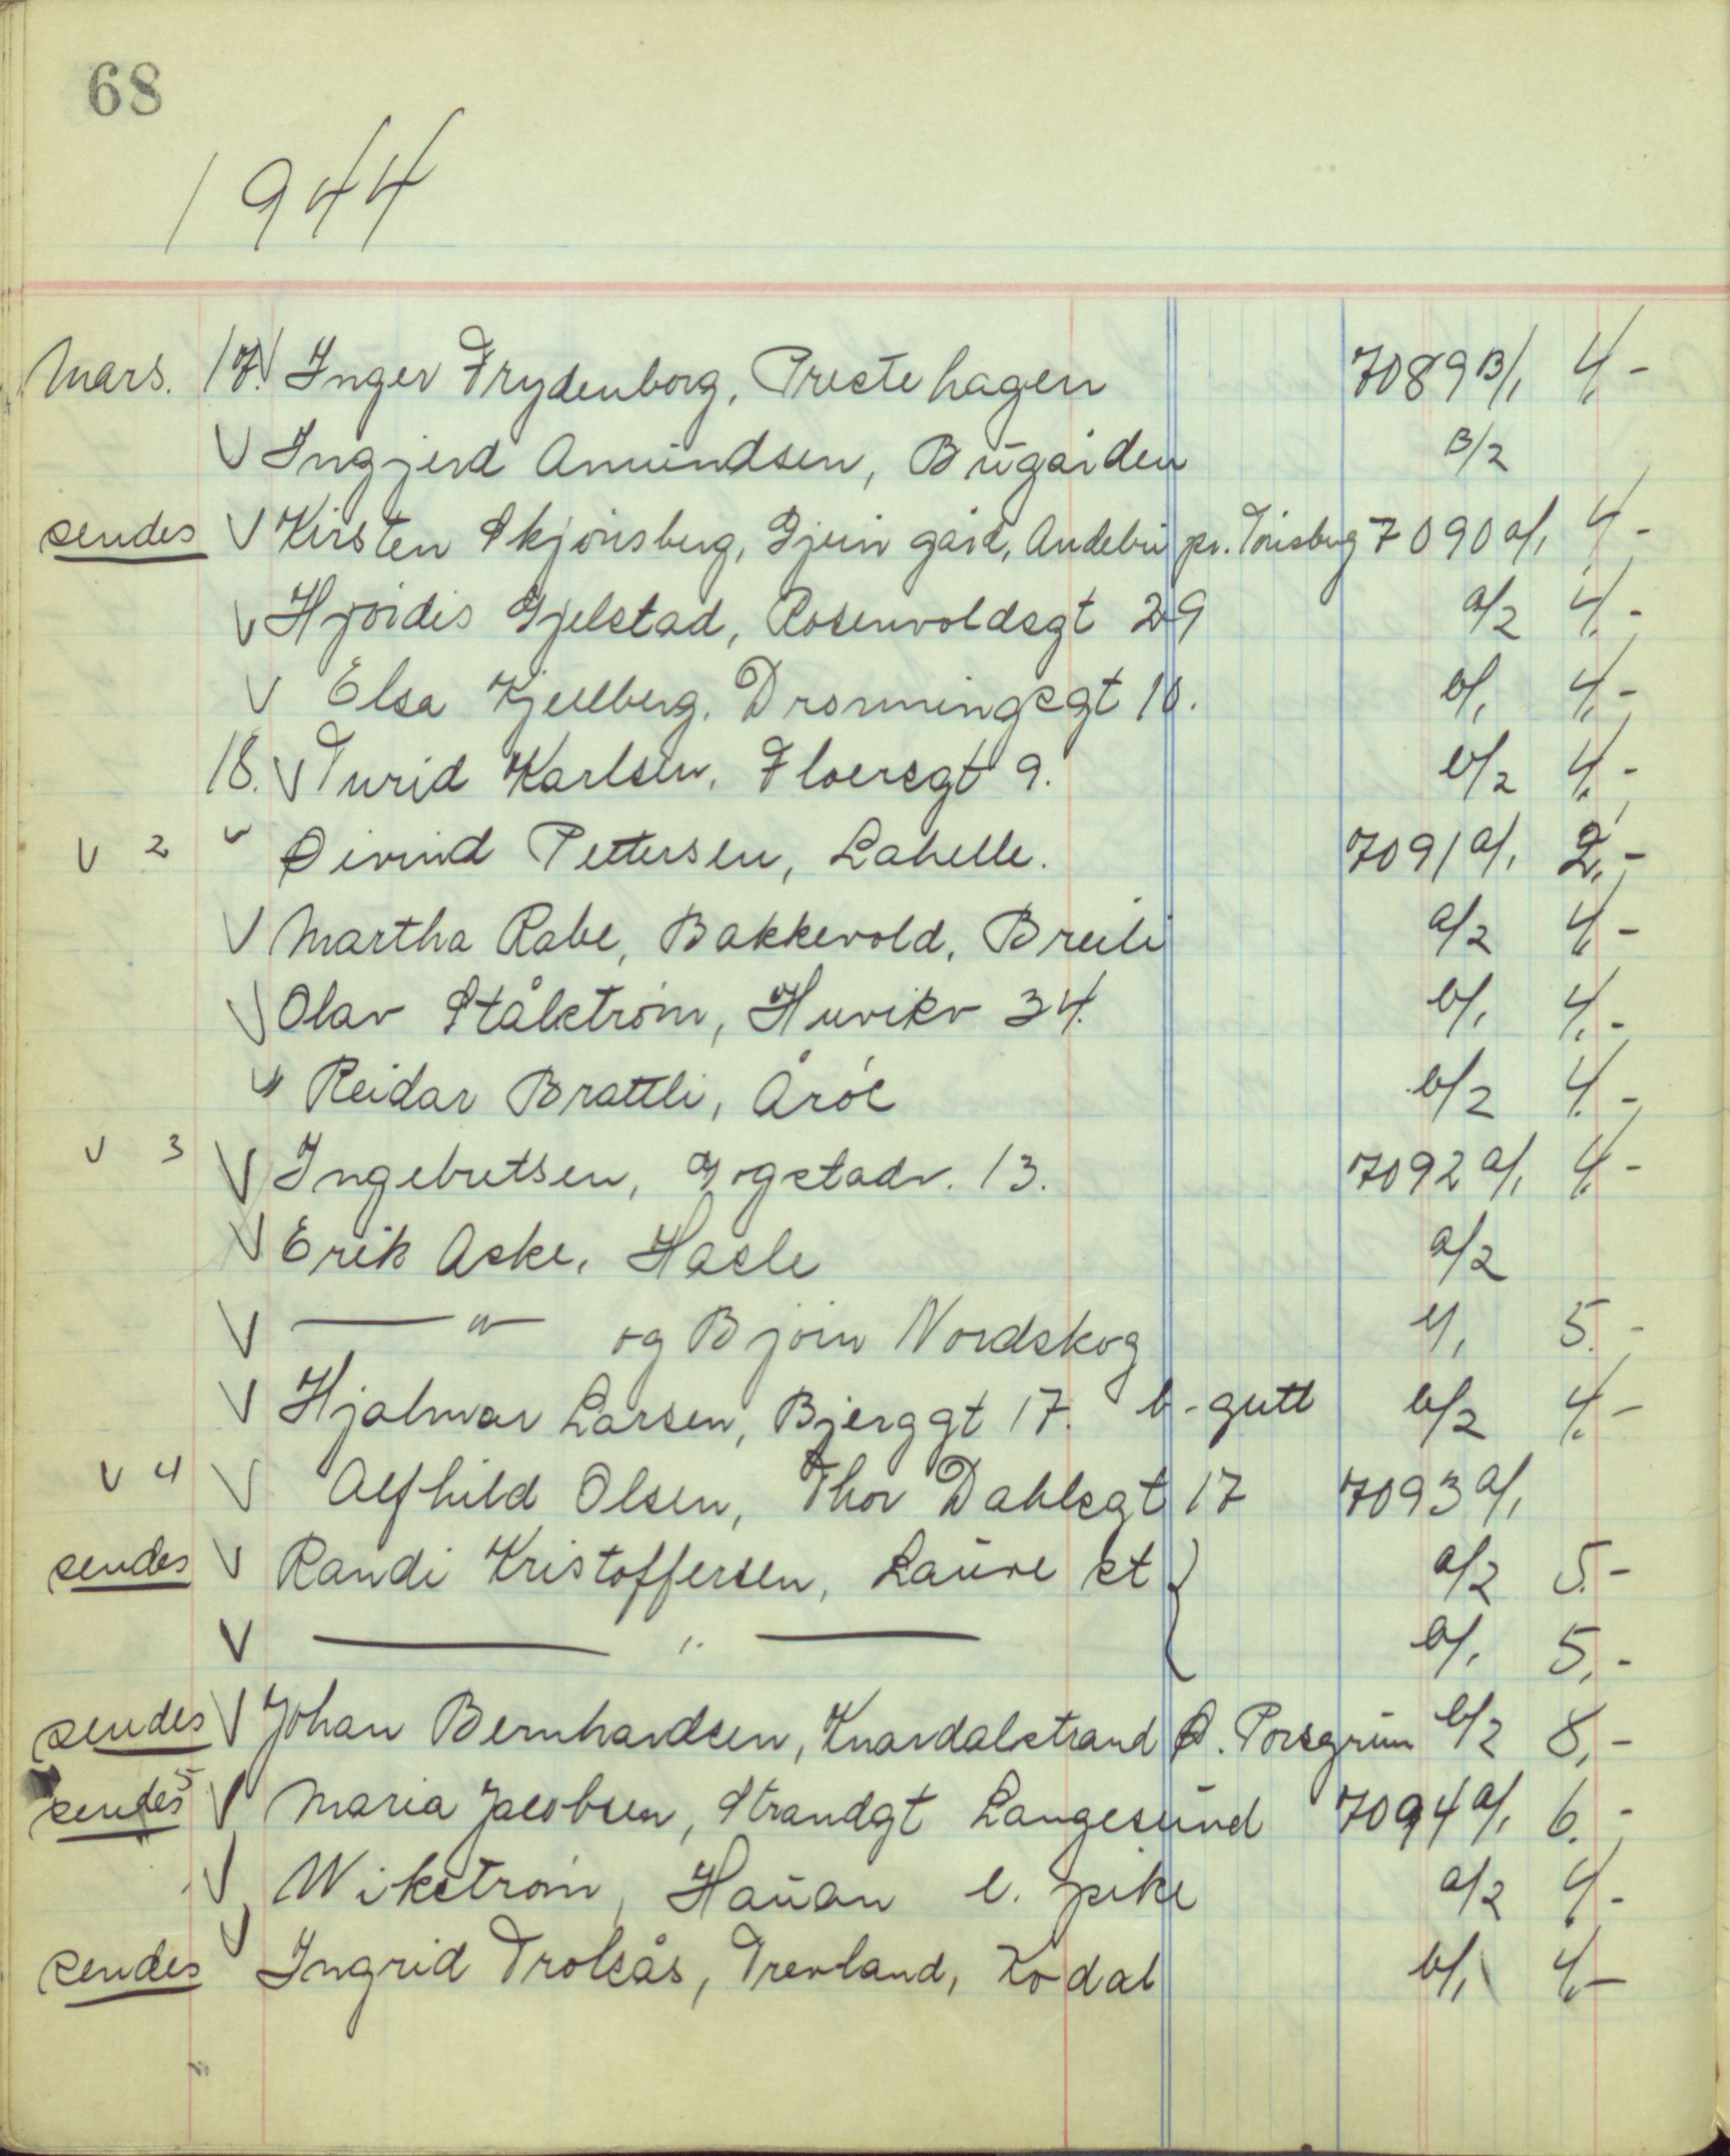 68
1944
Mars. 17. V Inger Frydenborg, Prestehagen 7089 B/1 4,-
V Ingjerd Amundsen, Bugården B/2
sendes V Kirsten Skjønsberg, Gjein gård, Andebu pr. Tønsberg 7090 a/1 4,-
V Hjørdis Gjelstad, Rosenvoldsgt 29 a/2 4,-
V Elsa Kjellberg, Dronningsgt 10. b/1 4,-
18. V Turid Karlsen, Floersgt 9. b/2 4,-
V 2 V Øivind Pettersen, Labelle. 7091 a/1 2,-
V Martha Rabe, Bakkevold, Breili a/2 4,-
V Olav Stålstrøm, Huvikv 34. b/1 4,-
V Reidar Brattli, Årøl b/2 4,-
V 3 V Ingebretsen, Gogstadv. 13. 7092 a/1 4,-
V Erik Aske, Hasle a/2
V — " — og Bjørn Nordskog b/1 5,-
V Hjalmar Larsen, Bjerggt 17. b-gutt b/2 4,-
V 4 V Alfhild Olsen, Thor Dahlsgt 17 7093 a/1
sendes V Randi Kristoffersen, Lauve st } a/2 5,-
V — " — b/1 5,-
sendes V Johan Bernhardsen, Knardalstrand Ø. Porsgrunn b/2 8,-
sendes 5 V Maria Jacobsen, Strandgt Langesund 7094 a/1 6,-
V Wikstrøm, Hauan l. pike a/2 4,-
sendes V Ingrid Trolsås, Trevland, Kodal b/1 4,-